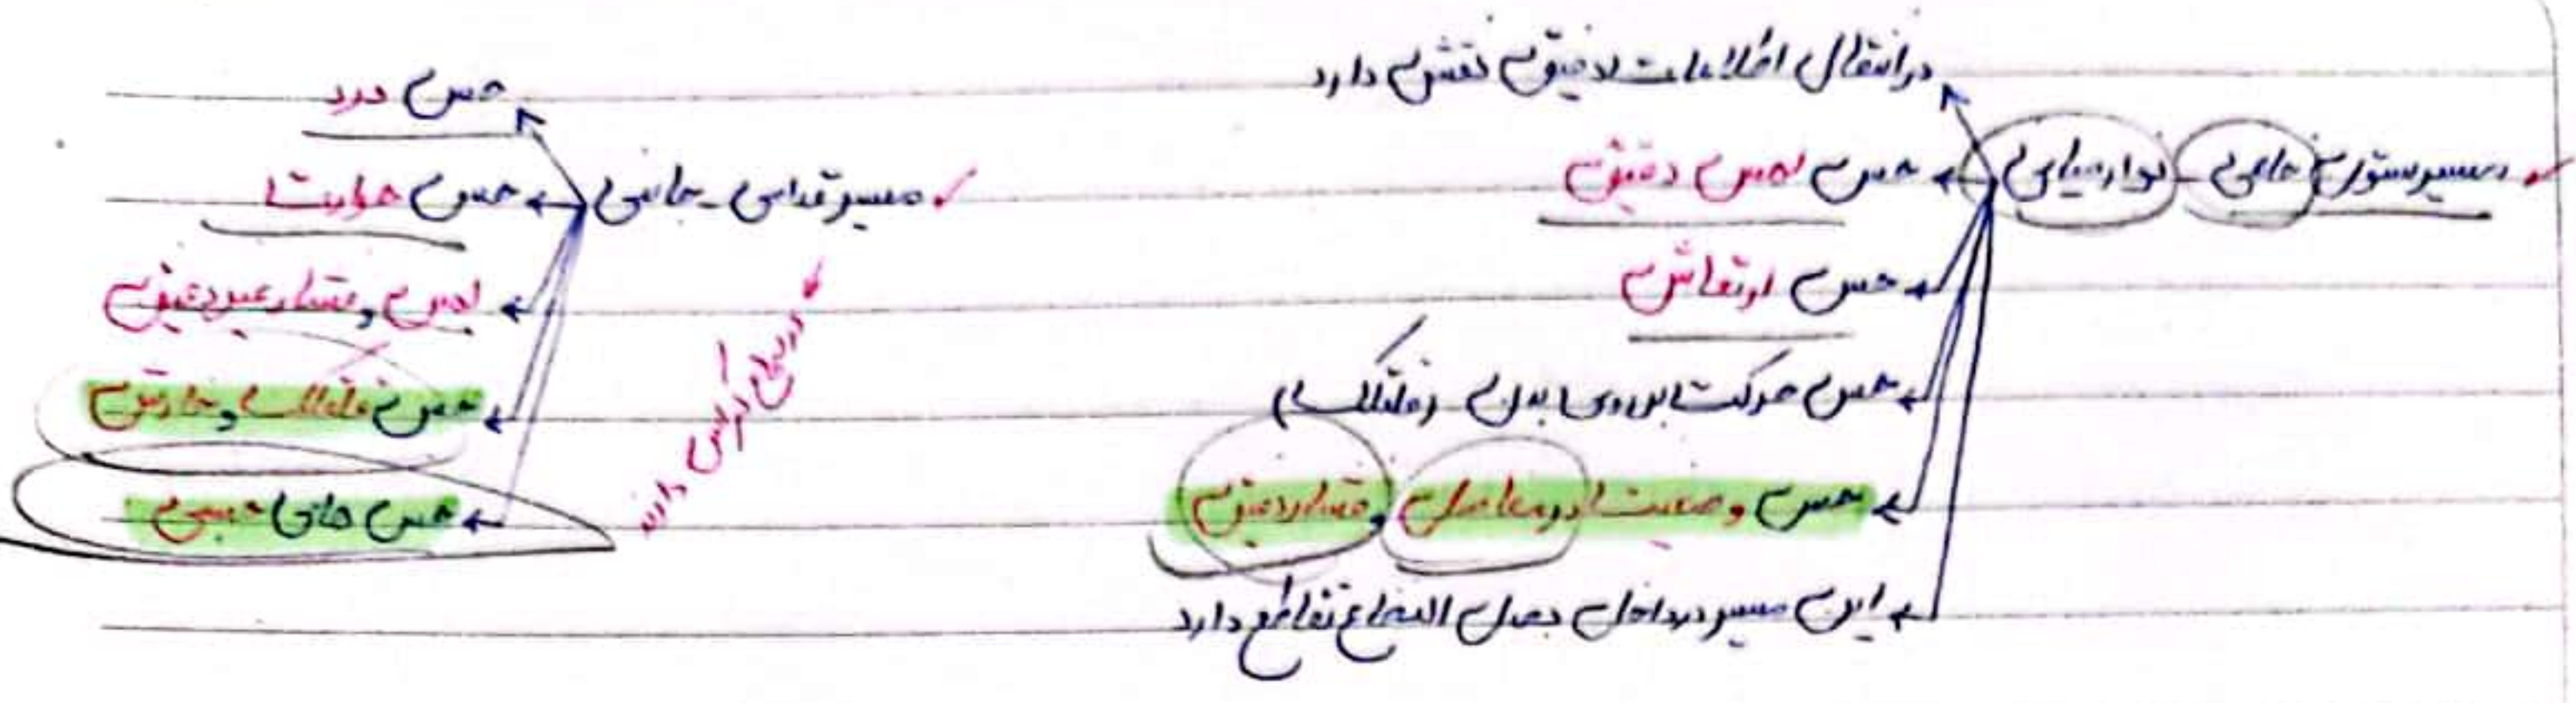 مسیر ستون خلفی - نوار میانی
در انتقال اطلاعات دقیق نقش دارد
حس لمس دقیق
حس ارتعاش
حس حرکت بر روی بدن (قلقلک)
حس وضعیت در مفاصل و فشار دقیق
این مسیر در داخل بصل النخاع تقاطع دارد
مسیر قدامی - جانبی
حس درد
حس حرارت
لمس و فشار غیر دقیق
حس قلقلک و خارش
حس های جنسی
در نخاع کراس دارن